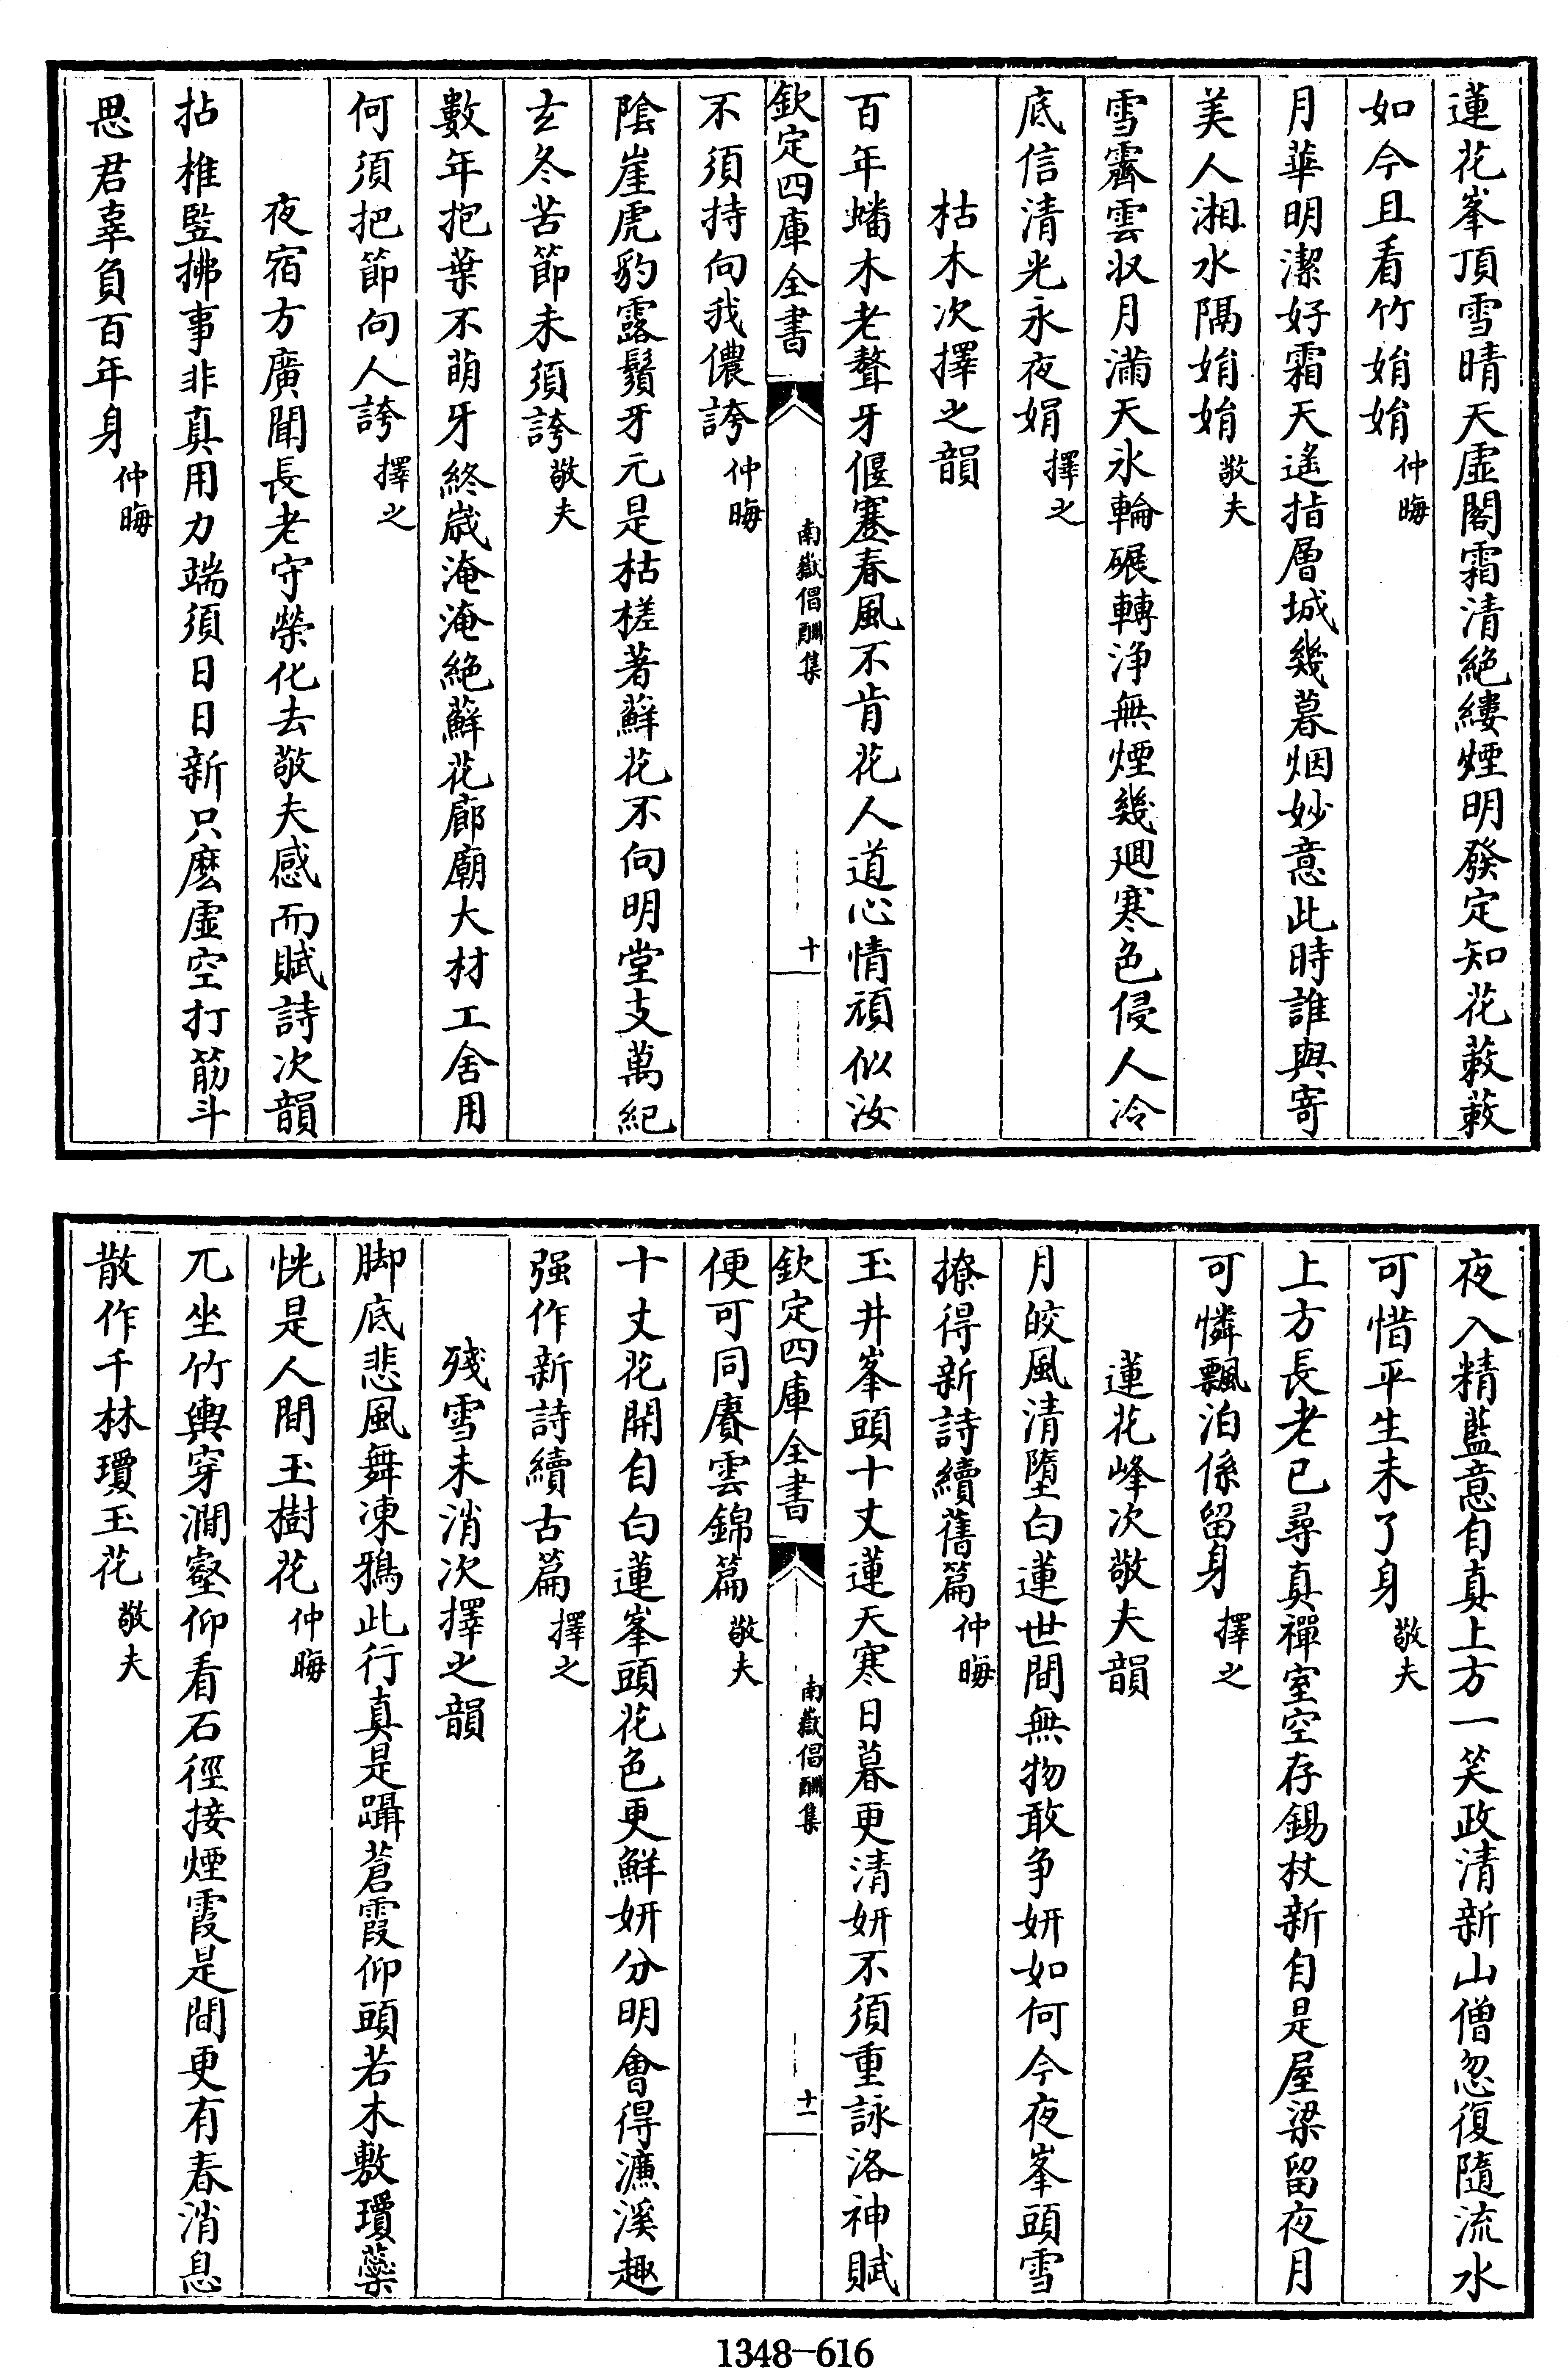 蓮花峯頂雪晴天虚閣霜清絶縷煙明發定知花蔌蔌
如今且看竹娟娟仲晦
月華明潔好霜天遙指層城幾暮烟妙意此時誰與寄
美人湘水隔娟娟敬夫
雪霽雲收月滿天氷輪碾轉浄無煙幾廻寒色侵人冷
底信清光永夜娟擇之
枯木次擇之韻
百年蟠木老聱牙偃蹇春風不肯花人道心情頑似汝
欽定四庫全書
南嶽倡酬集
十
不須持向我儂誇仲晦
陰崖虎豹露鬚牙元是枯槎著蘚花不向明堂支萬紀
玄冬苦節未須誇敬夫
數年抱葉不萌牙終歲淹淹絶蘚花廊廟大材工舍用
何須把節向人誇擇之
夜宿方廣聞長老守榮化去敬夫感而賦詩次韻
拈椎豎拂事非真用力端須日日新只麽虚空打筋斗
思君辜負百年身仲晦
夜入精藍意自真上方一笑政清新山僧忽復隨流水
可惜平生未了身敬夫
上方長老已尋真禪室空存錫杖新自是屋梁留夜月
可憐飄泊係留身擇之
蓮花峰次敬夫韻
月皎風清墮白蓮世間無物敢争妍如何今夜峯頭雪
撩得新詩續舊篇仲晦
玉井峯頭十丈蓮天寒日暮更清妍不須重詠洛神賦
欽定四庫全書
南嶽倡酬集
十一
便可同賡雲錦篇敬夫
十丈花開自白蓮峯頭花色更鮮妍分明會得濂溪趣
强作新詩續古篇擇之
殘雪未消次擇之韻
脚底悲風舞凍鴉此行真是躡蒼霞仰頭若木敷瓊蘂
恍是人間玉樹花仲晦
兀坐竹輿穿澗壑仰看石徑接煙霞是間更有春消息
散作千林瓊玉花敬夫
1348-616